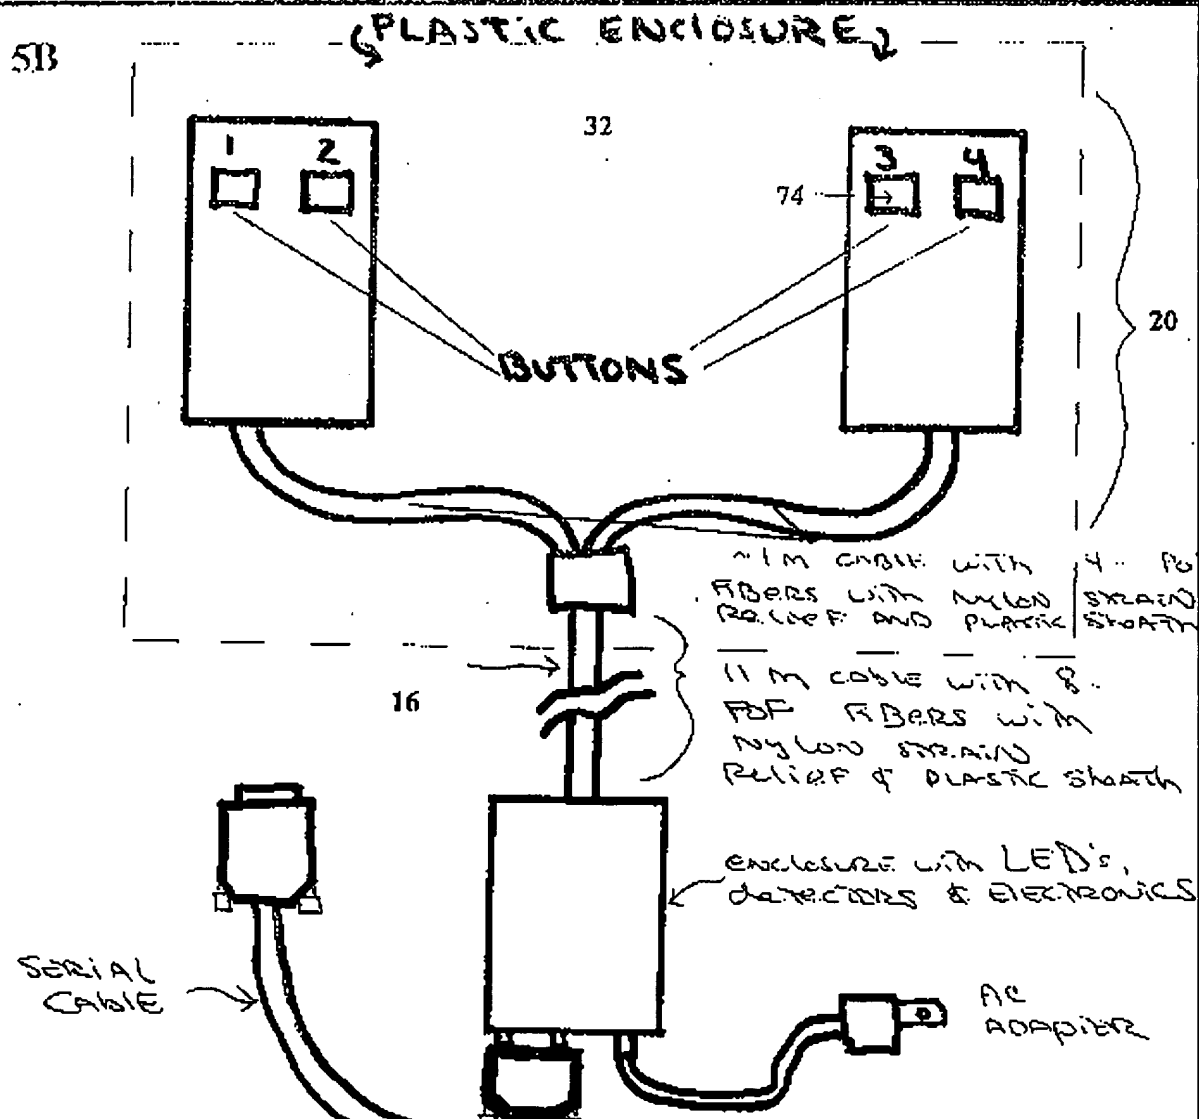 PLASTIC ENCLOSURE
5B
32
1 2
3 4
74
20
BUTTONS
~1 M CABLE WITH 4
FIBERS WITH NYLON STRAIN
RELIEF AND PLASTIC SHEATH
16
11 M CABLE WITH 8
FIBERS WITH
NYLON STRAIN
RELIEF & PLASTIC SHEATH
ENCLOSURE WITH LED's,
DETECTORS & ELECTRONICS
SERIAL
CABLE
AC
ADAPTER